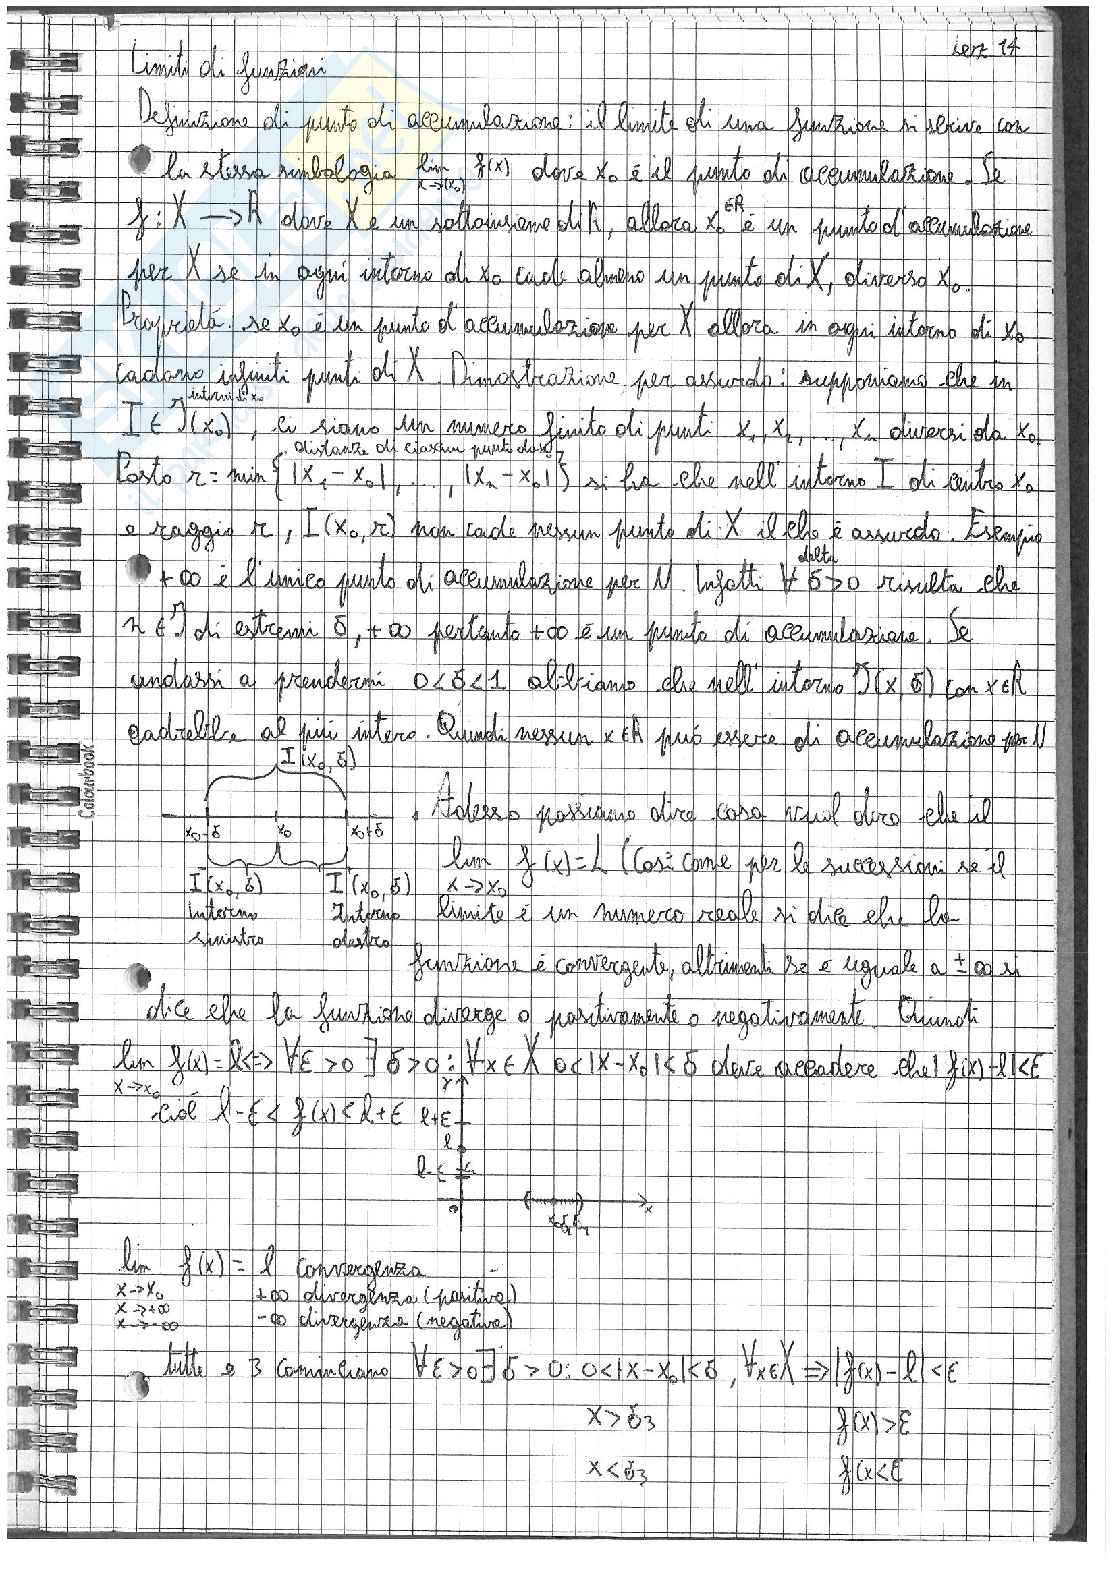 Lez 14
Limiti di funzioni
Definizione di punto di accumulazione: il limite di una funzione si scrive con
la stessa simbologia lim x→(x₀) f(x) dove x₀ è il punto di accumulazione. Se
f: X → R dove X è un sottoinsieme di R, allora x₀ ∈R è un punto d'accumulazione
per X se in ogni intorno di x₀ cade almeno un punto di X, diverso x₀.
Proprietà. se x₀ è un punto d'accumulazione per X allora in ogni intorno di x₀
cadono infiniti punti di X. Dimostrazione per assurdo: supponiamo che in
intorni di x₀
I ∈ J(x₀), ci siano un numero finito di punti x₁, x₂, ..., xₙ diversi da x₀.
distanze di ciascun punto da x₀
Posto r = min { |x₁ - x₀|, ..., |xₙ - x₀| } si ha che nell'intorno I di centro x₀
e raggio r, I(x₀, r) non cade nessun punto di X il che è assurdo. Esempio
delta
+∞ è l'unico punto di accumulazione per N. Infatti ∀ δ>0 risulta che
n ∈ J di estremi δ, +∞ pertanto +∞ è un punto di accumulazione. Se
andassi a prendermi 0<δ<1 abbiamo che nell'intorno J(x, δ) con x∈R
cadrebbe al più intero. Quindi nessun x∈R può essere di accumulazione per N
Colourbook
I(x₀, δ)
x₀-δ x₀ x₀+δ
I⁻(x₀, δ) I⁺(x₀, δ)
intorno Intorno
sinistro destro
. Adesso possiamo dire cosa vuol dire che il
lim x→x₀ f(x)=L (Così come per le successioni se il
limite è un numero reale si dice che la
funzione è convergente, altrimenti se è uguale a ±∞ si
dice che la funzione diverge o positivamente o negativamente. Quindi
lim x→x₀ f(x)=l <=> ∀ε>0 ∃ δ>0: ∀x∈X 0<|x-x₀|<δ deve accadere che |f(x)-l|<ε
cioè l-ε < f(x) < l+ε
y
l+ε
l
l-ε
0 x
lim f(x) = l convergenza
x→x₀ +∞ divergenza (positiva)
x→+∞ -∞ divergenza (negativa)
x→-∞
tutte e 3 cominciano ∀ε>0 ∃ δ>0: 0<|x-x₀|<δ, ∀x∈X ⇒ |f(x)-l|<ε
x>δ₃ f(x)>ε
x<δ₃ f(x<ε